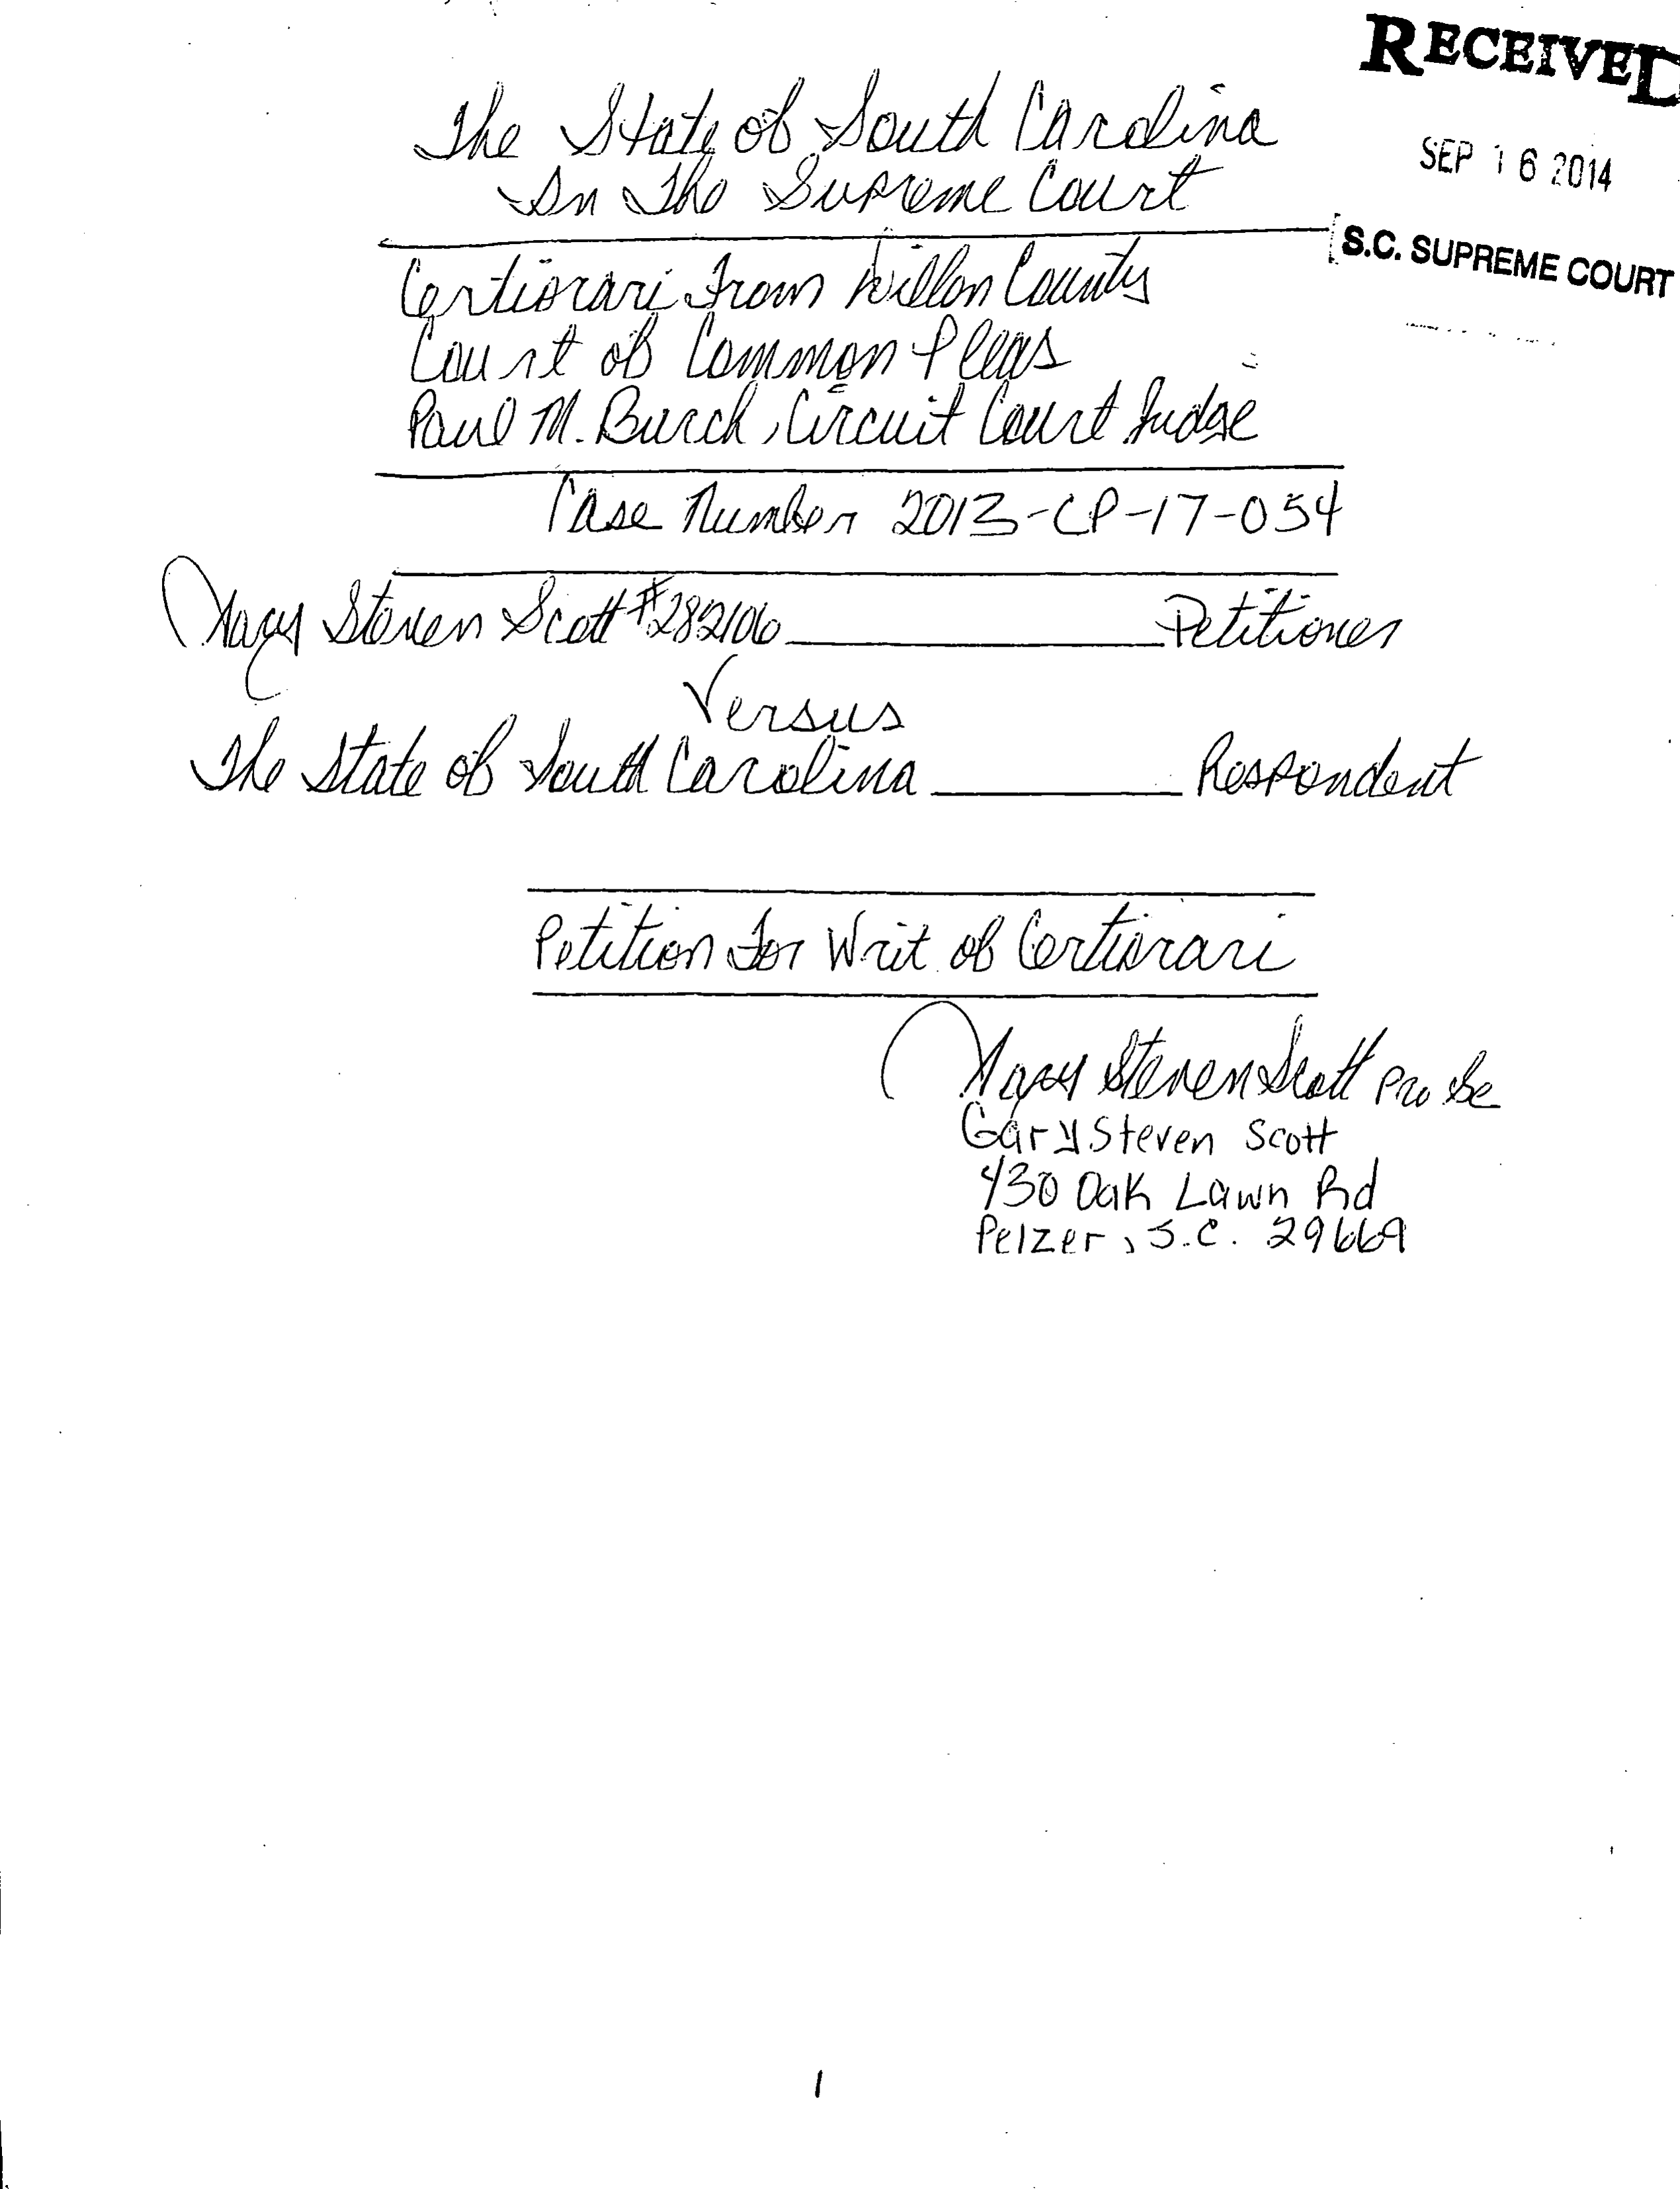 RECEIVED
SEP 16 2014
S.C. SUPREME COURT
The State of South Carolina
In The Supreme Court
Certiorari From Dillon County
Court of Common Pleas
Paul M. Burch, Circuit Court Judge
Case Number 2013-CP-17-054
Gary Steven Scott #282106 Petitioner
Versus
The State of South Carolina Respondent
Petition For Writ of Certiorari
Gary Steven Scott Pro Se
Gary Steven Scott
430 Oak Lawn Rd
Pelzer, S.C. 29669
1